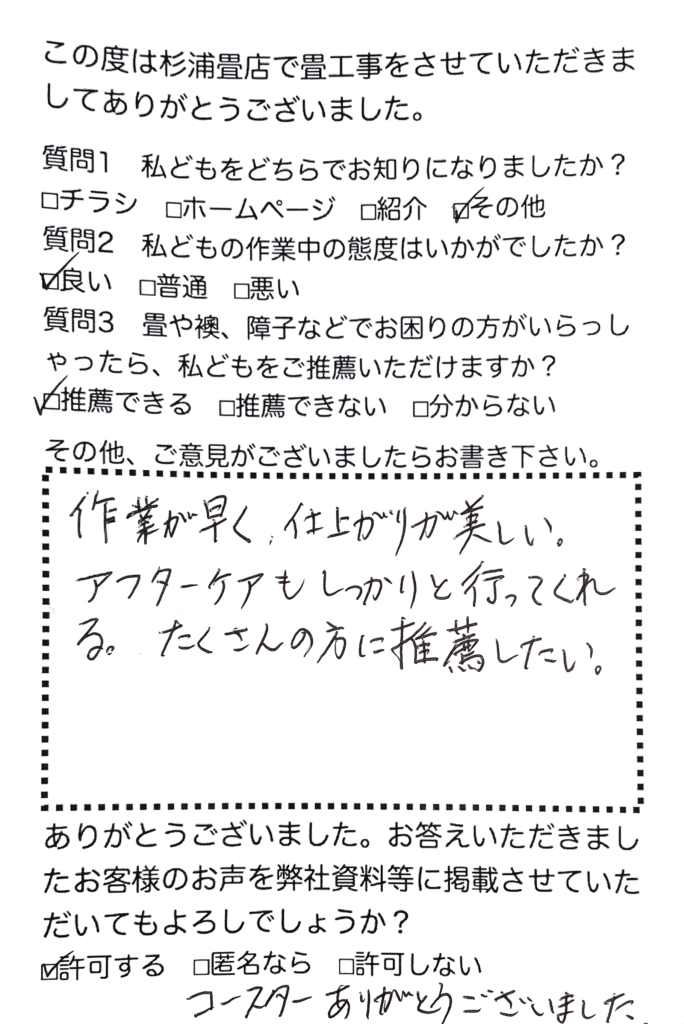 この度は杉浦畳店で畳工事をさせていただきま
してありがとうございました。
質問1　私どもをどちらでお知りになりましたか？
□チラシ　□ホームページ　□紹介　☑その他
質問2　私どもの作業中の態度はいかがでしたか？
☑良い　□普通　□悪い
質問3　畳や襖、障子などでお困りの方がいらっし
ゃったら、私どもをご推薦いただけますか？
☑推薦できる　□推薦できない　□分からない
その他、ご意見がございましたらお書き下さい。
作業が早く、仕上がりが美しい。
アフターケアもしっかりと行ってくれ
る。たくさんの方に推薦したい。
ありがとうございました。お答えいただきまし
たお客様のお声を弊社資料等に掲載させていた
だいてもよろしでしょうか？
☑許可する　□匿名なら　□許可しない
コースターありがとうございました。